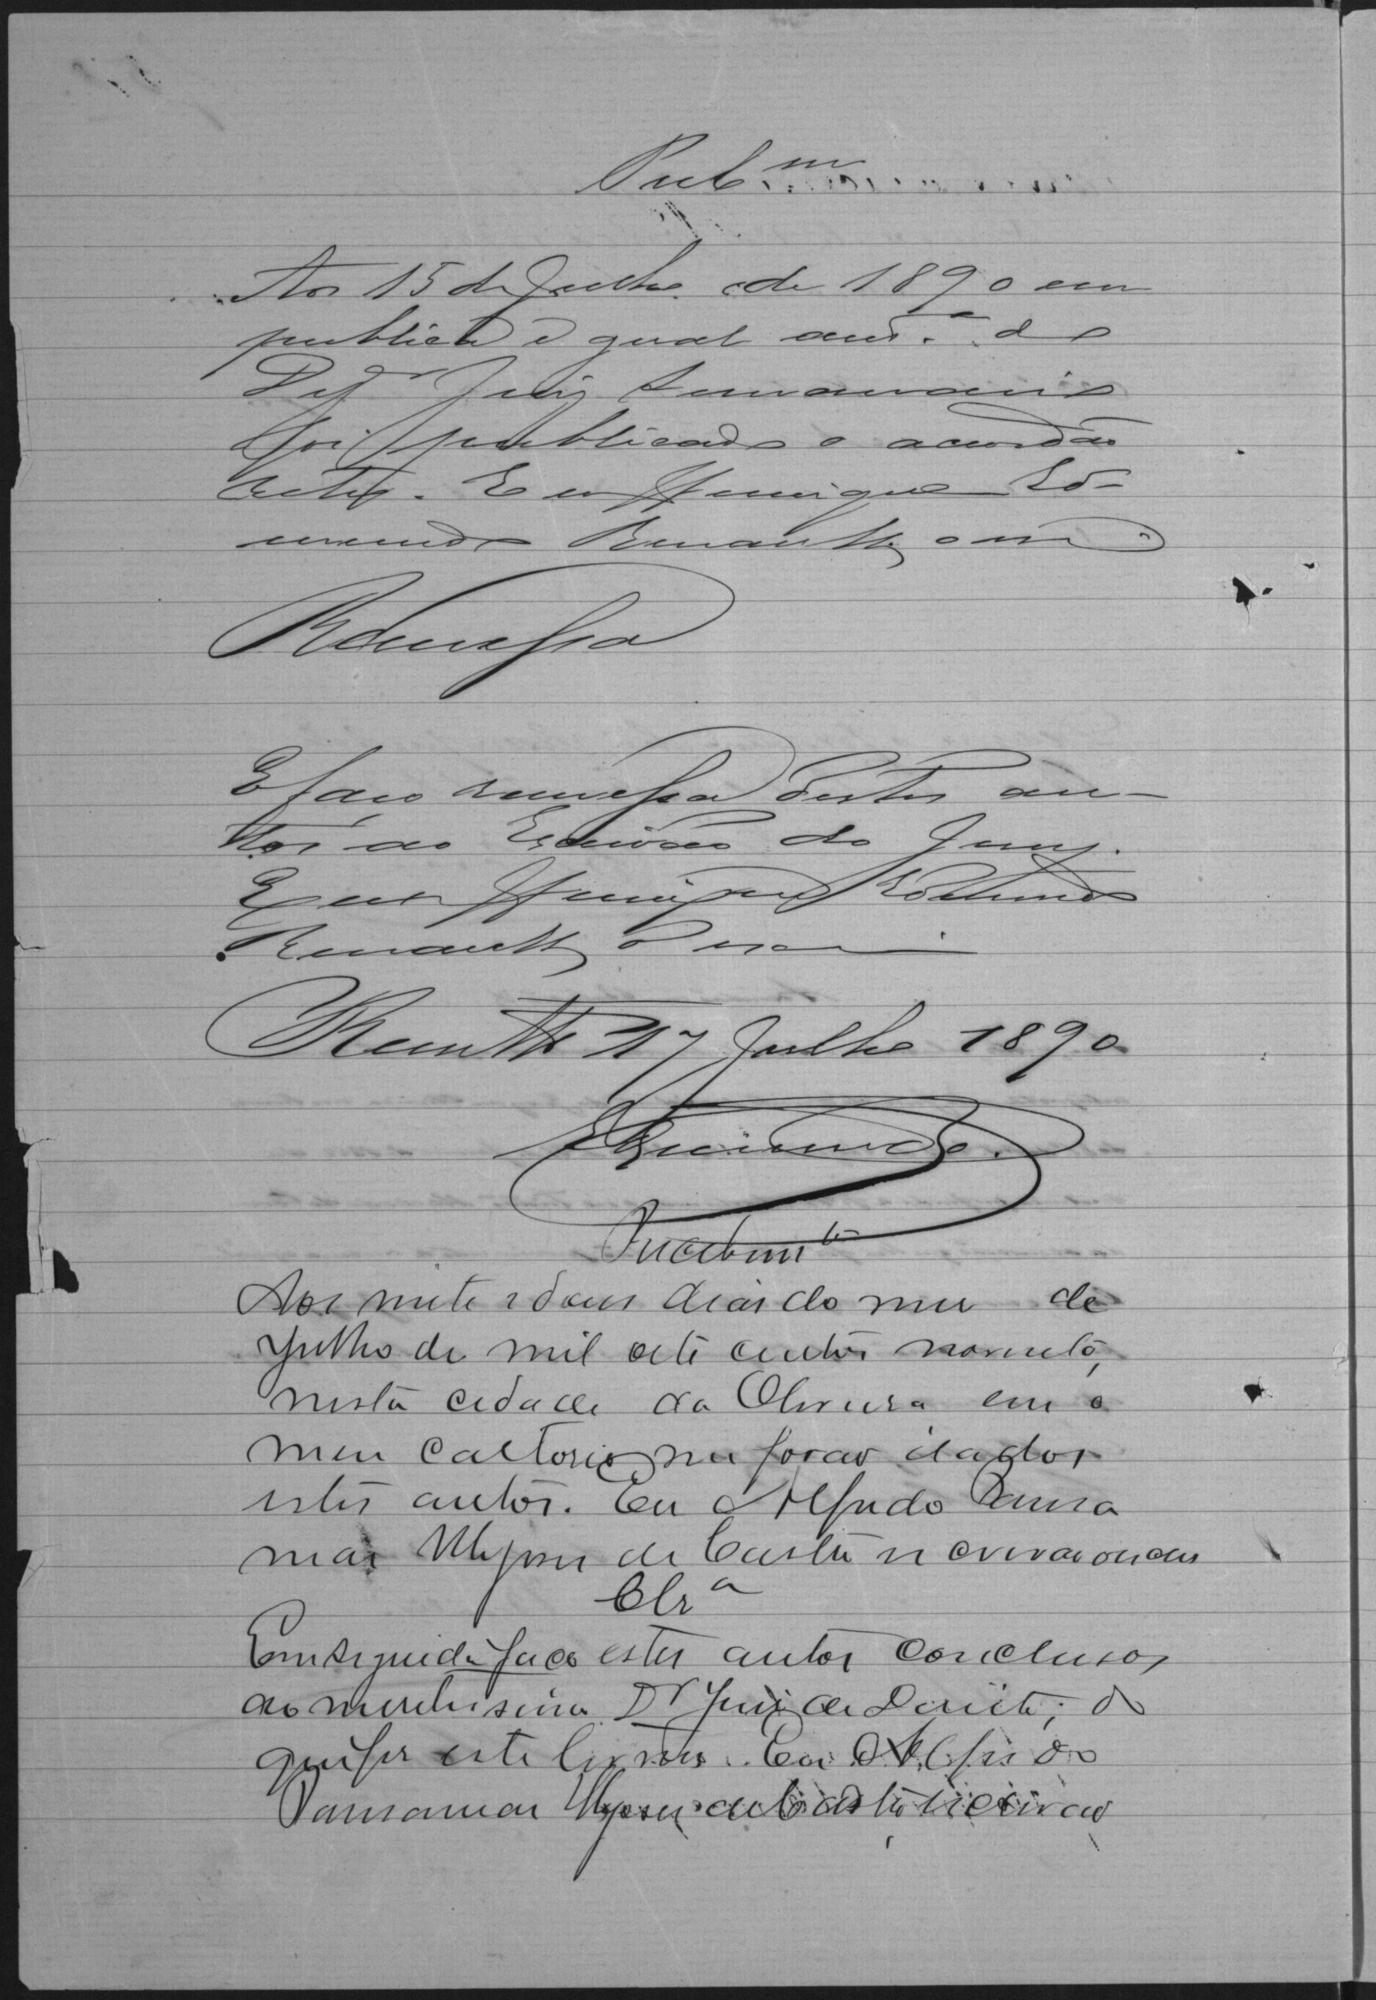 Pub.m
Aos 15 de Julho de 1890 em
publica e geral aud.a do
Dez.r Juiz Semanario
foi publicado o acordão
retro. Eu Henrique Ed-
mundo Renault, o
Remessa
E faço remessa destes au-
tos ao Escrivão do Jury.
Eu Henrique Edmundo
Renault, o
Remettº 17 Julho 1890
Recebim.to
Aos vinte e dous dias do mez de
Julho de mil oito centos noventa,
nesta cidade da Oliveira em o
meu cartorio me forão dados
estes autos. Eu Alfredo
de Castro o escrivão
Cls.a
Em seguida faço estes autos conclusos
ao meretissimo Dr Juiz de Direito; do
que fiz este termo. Eu Alfredo
de Castro escrivão